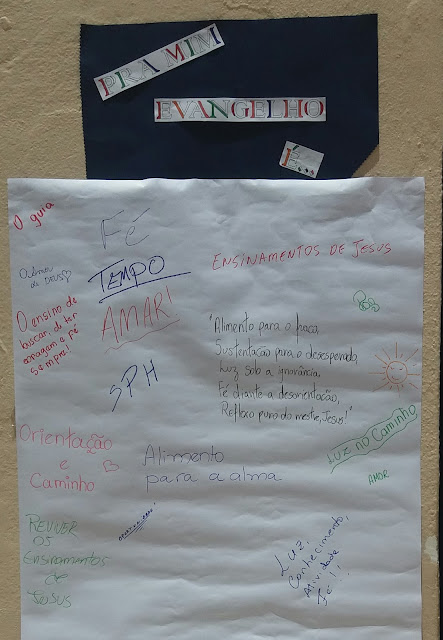 PRA MIM
EVANGELHO
É
O guia
Fé
O Amor
de DEUS
TEMPO
ENSINAMENTOS DE JESUS
O ensino de
buscar, di ter
coragem e fé
sempre!
AMAR!
"Alimento para o fraco,
Sustentação para o desesperado,
Luz sob a ignorância,
Fé diante a desorientação,
Reflexo puro do mestre, Jesus!"
SPH
LUZ NO CAMINHO
Orientação
e
Caminho
Alimento
para a alma
AMOR
REVIVER
OS
Ensinamentos
de
JESUS
Luz,
Conhecimento,
Atividade
Fé!!